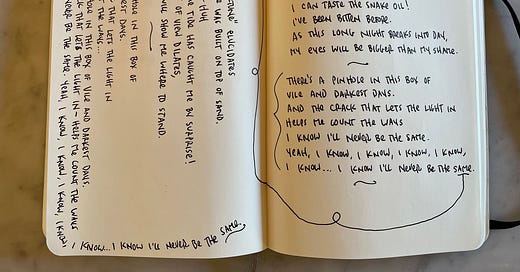 ELUCIDATES
WAS BUILT ON TOP OF SAND.
TIDE HAS CAUGHT ME BY SURPRISE!
OF VIEW DILATES,
WILL SHOW ME WHERE TO STAND.
IN THIS BOX OF
DAYS.
THAT LETS THE LIGHT IN
THE WAYS...
IN THIS BOX OF VILE AND DARKEST DAYS.
THAT LETS THE LIGHT IN – HELPS ME COUNT THE WAYS
NEVER BE THE SAME. YEAH, I KNOW, I KNOW, I KNOW, I KNOW
I KNOW... I KNOW I'LL NEVER BE THE SAME.
I CAN TASTE THE SNAKE OIL!
I'VE BEEN BITTEN BEFORE.
AS THIS LONG NIGHT BREAKS INTO DAY,
MY EYES WILL BE BIGGER THAN MY SHAME.
THERE'S A PINHOLE IN THIS BOX OF
VILE AND DARKEST DAYS.
AND THE CRACK THAT LETS THE LIGHT IN
HELPS ME COUNT THE WAYS
I KNOW I'LL NEVER BE THE SAME.
YEAH, I KNOW, I KNOW, I KNOW, I KNOW,
I KNOW... I KNOW I'LL NEVER BE THE SAME.